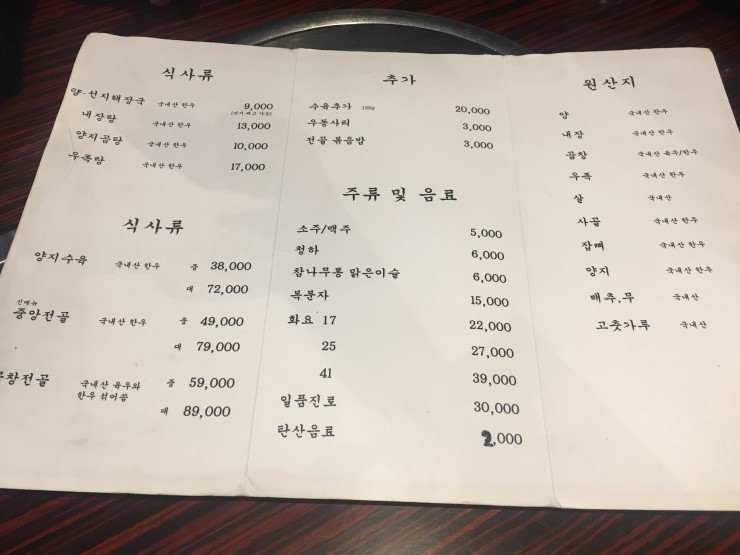 식사류
양·선지해장국 국내산 한우 9,000
내장탕 국내산 한우 13,000
양지곰탕 국내산 한우 10,000
우족탕 국내산 한우 17,000
식사류
양지수육 국내산 한우 중 38,000
대 72,000
신메뉴
중앙전골 국내산 한우 중 49,000
대 79,000
곱창전골 국내산 육우와 중 59,000
한우 섞어씀
대 89,000
추가
수육추가 150g 20,000
우동사리 3,000
전골 볶음밥 3,000
주류 및 음료
소주/맥주 5,000
청하 6,000
참나무통 맑은이슬 6,000
복분자 15,000
화요 17 22,000
25 27,000
41 39,000
일품진로 30,000
탄산음료 2,000
원산지
양 국내산 한우
내장 국내산 한우
곱창 국내산 육우/한우
우족 국내산 한우
쌀 국내산
사골 국내산 한우
잡뼈 국내산 한우
양지 국내산 한우
배추.무 국내산
고춧가루 국내산